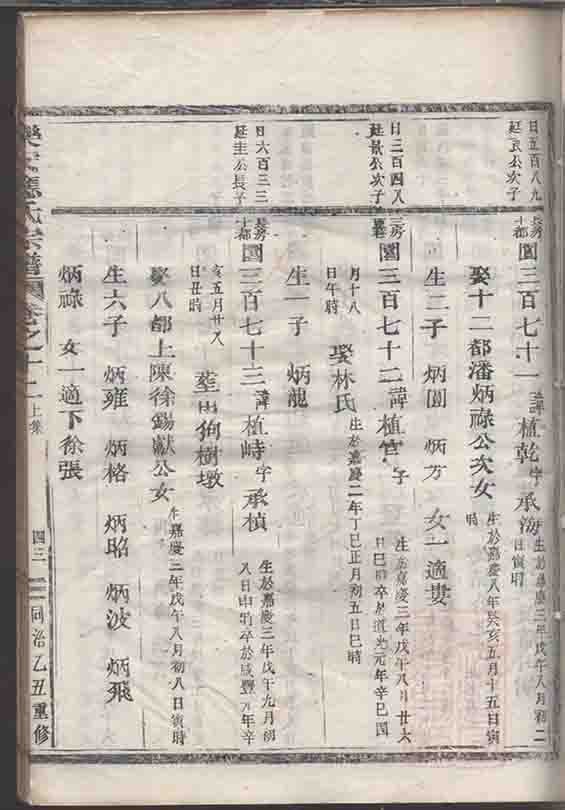 日五百八九
延哀公次子
長房
十都
國三百七十一
諱植乾字承海
生於嘉慶三年戊午八月初二
日寅時
娶十二都潘炳祿公次女
生於嘉慶八年癸亥五月十五日寅
時
生二子 炳圓 炳方 女一適婁
日三百四八
延景公次子
三房
國三百七十二
諱植官 子
生於嘉慶三年戊午八月廿六
日巳時卒於道光元年辛巳閏
月十八
日午時
娶林氏
生於嘉慶二年丁巳正月初五日巳時
生一子 炳龍
日六百三三
延圭公長子
長房
十都
國三百七十三
諱植峙字承楨
生於嘉慶三年戊午九月初
八日申時卒於咸豐元年辛
亥五月廿八
日丑時
塟山狗樹墩
娶八都上陳徐錫獻公女
生嘉慶三年戊午八月初八日寅時
生六子 炳雍 炳格 炳昭 炳波 炳飛
炳祿 女一適下徐張
氏宗譜
卷之十二上集
四三
同治乙丑重修